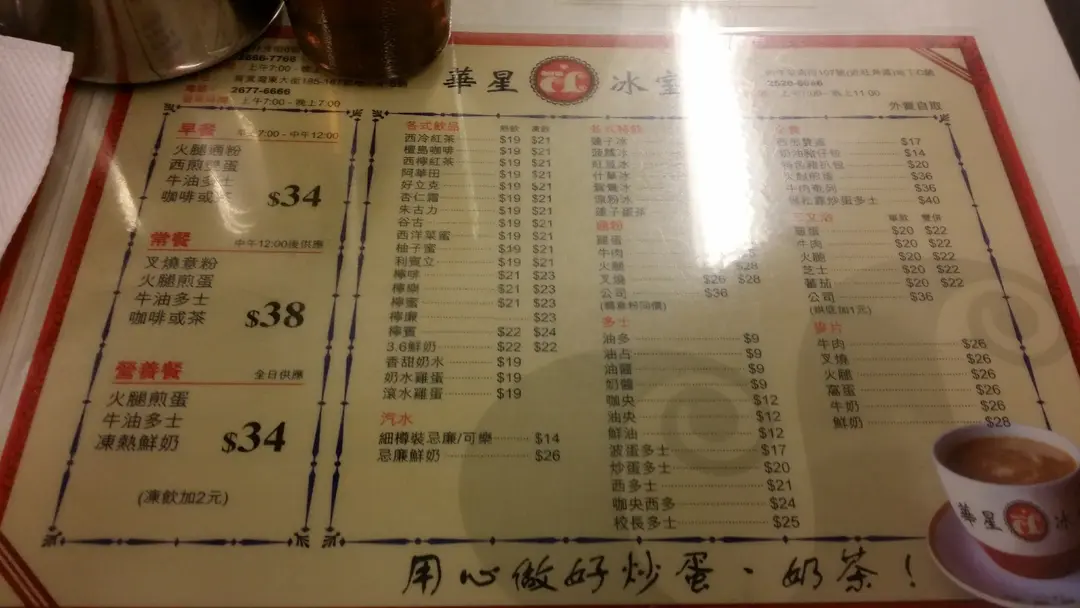 2677-6666
上午7:00 - 晚上7:00
華星冰室
外賣自取
早餐
中午12:00
火腿通粉
西煎雙蛋
牛油多士
咖啡或茶
$34
常餐 中午12:00後供應
叉燒意粉
火腿煎蛋
牛油多士
咖啡或茶
$38
營養餐 全日供應
火腿煎蛋
牛油多士
凍熱鮮奶
$34
(凍飲加2元)
各式飲品
西冷紅茶 $19 $21
檀島咖啡 $19 $21
西檸紅茶 $19 $21
阿華田 $19 $21
好立克 $19 $21
杏仁霜 $19 $21
朱古力 $19 $21
谷古 $19 $21
西洋菜蜜 $19 $21
柚子蜜 $19 $21
利賓立 $19 $21
檸啡 $21 $23
檸樂 $21 $23
檸蜜 $21 $23
檸濂 $23
檸賓 $22 $24
3.6鮮奶 $22 $22
香甜奶水 $19
奶水雞蛋 $19
滾水雞蛋 $19
汽水
細樽裝忌廉/可樂 $14
忌廉鮮奶 $26
紅豆冰
什菓冰
鴛鴦冰
涼粉冰
通粉
雞蛋
牛肉
火腿 $28
叉燒 $26 $28
公司 $36
(轉意粉同價)
多士
油多 $9
油占 $9
油鹽 $9
奶醬 $9
咖央 $12
油央 $12
鮮油 $12
波蛋多士 $17
炒蛋多士 $20
西多士 $21
咖央西多 $24
校長多士 $25
$17
奶油豬仔包 $14
$20
火腿煎蛋 $36
$36
黑松露炒蛋多士 $40
三文治 單飲 雙併
雞蛋 $20 $22
牛肉 $20 $22
火腿 $20 $22
芝士 $20 $22
蕃茄 $20 $22
公司 $36
(烘底加1元)
麥片
牛肉 $26
叉燒 $26
火腿 $26
窩蛋 $26
牛奶 $26
鮮奶 $28
華星 冰
用心做好炒蛋、奶茶！